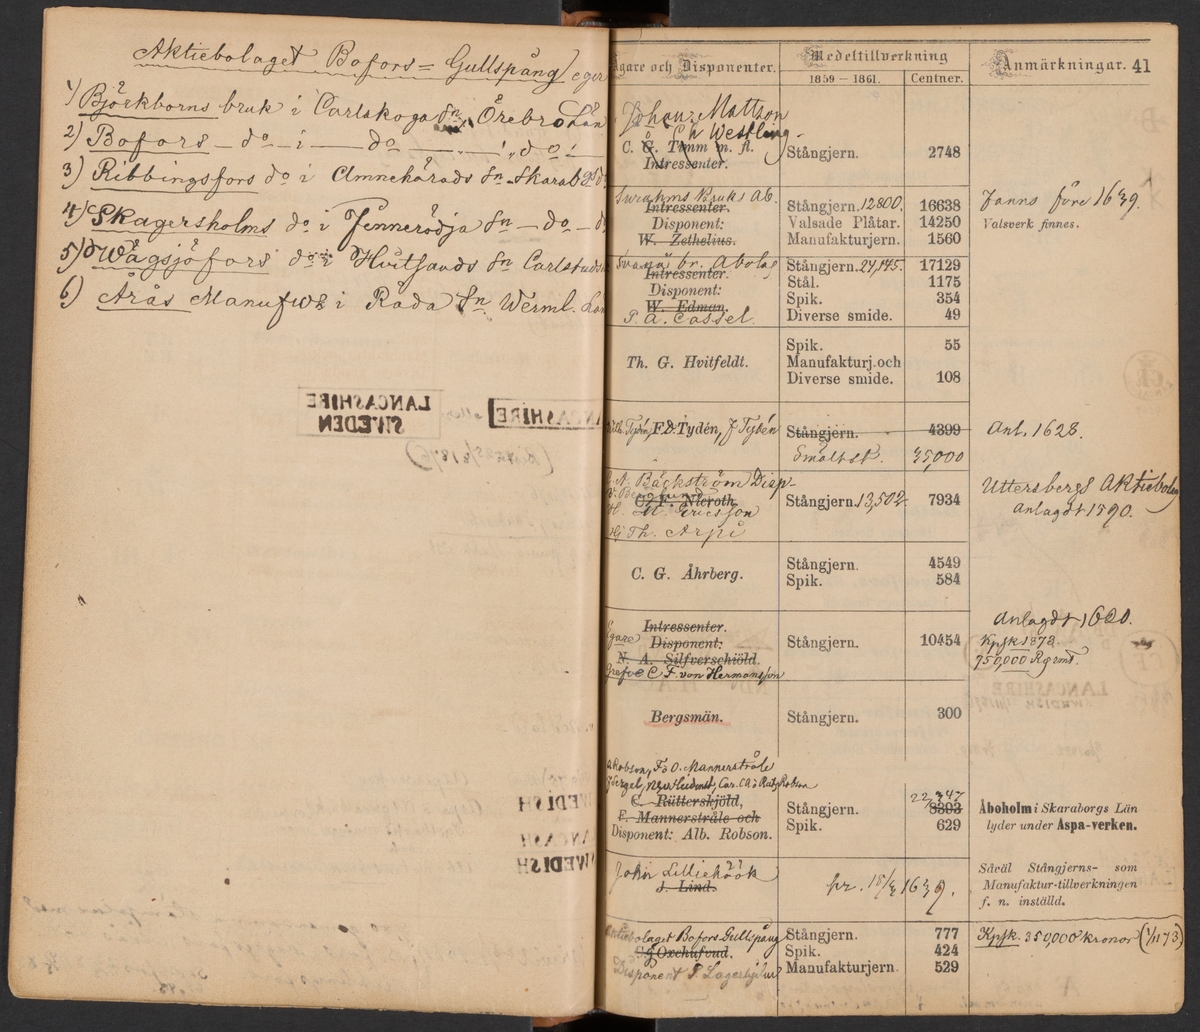 Aktiebolaget Bofors=Gullspång eger
1) Björkborns bruk i Carlskoga Sn, Örebro Län
2) Bofors — do — i — do — " — do —
3) Ribbingsfors do i Amnehärads Sn Skarab
4) Skagersholms do i Finnerödja Sn — do —
5) Wågsjöfors do i Hvitsands Sn Carlstads
6) Årås Manufwk i Råda Sn Werml. Län
LANCASHIRE
SWEDEN
LANCASHIRE
Ägare och Disponenter.
Medeltillverkning
1859 — 1861. Centner.
Anmärkningar. 41
Johan Mattson
Ch Westling
C. G. Timm m. fl.
Intressenter.
Stångjern. 2748
Surahms Bruks AB.
Intressenter.
Disponent:
W. Zethelius.
Stångjern. 12800. 16638
Valsade Plåtar. 14250
Manufakturjern. 1560
Fanns före 1639.
Valsverk finnes.
Svanå br. Abolag
Intressenter.
Disponent:
W. Edman.
P. A. Cassel.
Stångjern. 24,145. 17129
Stål. 1175
Spik. 354
Diverse smide. 49
Th. G. Hvitfeldt.
Spik. 55
Manufakturj. och
Diverse smide. 108
F. D. Tydén, J Tydén
Stångjern. 4399
Smältst. 35,000
Anl. 1628.
A. Bäckström Disp-
C. F. Nieroth.
Ericsson
Th. Arpi
Stångjern. 13,502 7934
Uttersbergs Aktiebolag
Anlagdt 1790.
C. G. Åhrberg.
Stångjern. 4549
Spik. 584
Intressenter.
Egare
Disponent:
N. A. Silfverschiöld.
Grefve C F. von Hermansson
Stångjern. 10454
Anlagdt 1620.
Kpsk 1878
750,000 Rgmt.
Bergsmän.
Stångjern. 300
Robson, F o O. Mannerstråle
C. Rütterskjöld,
F. Mannerstråle och
Disponent: Alb. Robson.
22,347
Stångjern. 8393
Spik. 629
Åboholm i Skaraborgs Län
lyder under Aspa-verken.
John Lilliehöök
J. Lind.
pr. 18/3 1639.
Såväl Stångjerns- som
Manufaktur-tillverkningen
f. n. inställd.
Aktiebolaget Bofors Gullspång
C G Oxehufvud.
Disponent P. Lagerhjelm
Stångjern. 777
Spik. 424
Manufakturjern. 529
Kpsk. 350,000 kronor (1/11 73)
WEDISH
LANCASH
SWEDISH